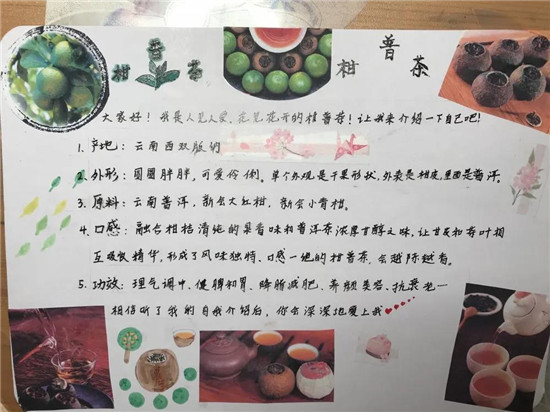 柑普茶
柑普茶
大家好！我是人见人爱、花见花开的柑普茶！让我来介绍一下自己吧！
1. 产地：云南西双版纳
2. 外形：圆圆胖胖，可爱伶俐。单个外观是干果形状，外表是柑皮，里面是普洱。
3. 原料：云南普洱，新会大红柑，新会小青柑。
4. 口感：融合柑桔清纯的果香味和普洱茶浓厚甘醇之味，让柑皮和茶叶相
互吸收精华，形成了风味独特、口感一绝的柑普茶，会越陈越香。
5. 功效：理气调中、健脾和胃、降脂减肥、养颜美容、抗衰老…
相信听了我的自我介绍后，你会深深地爱上我